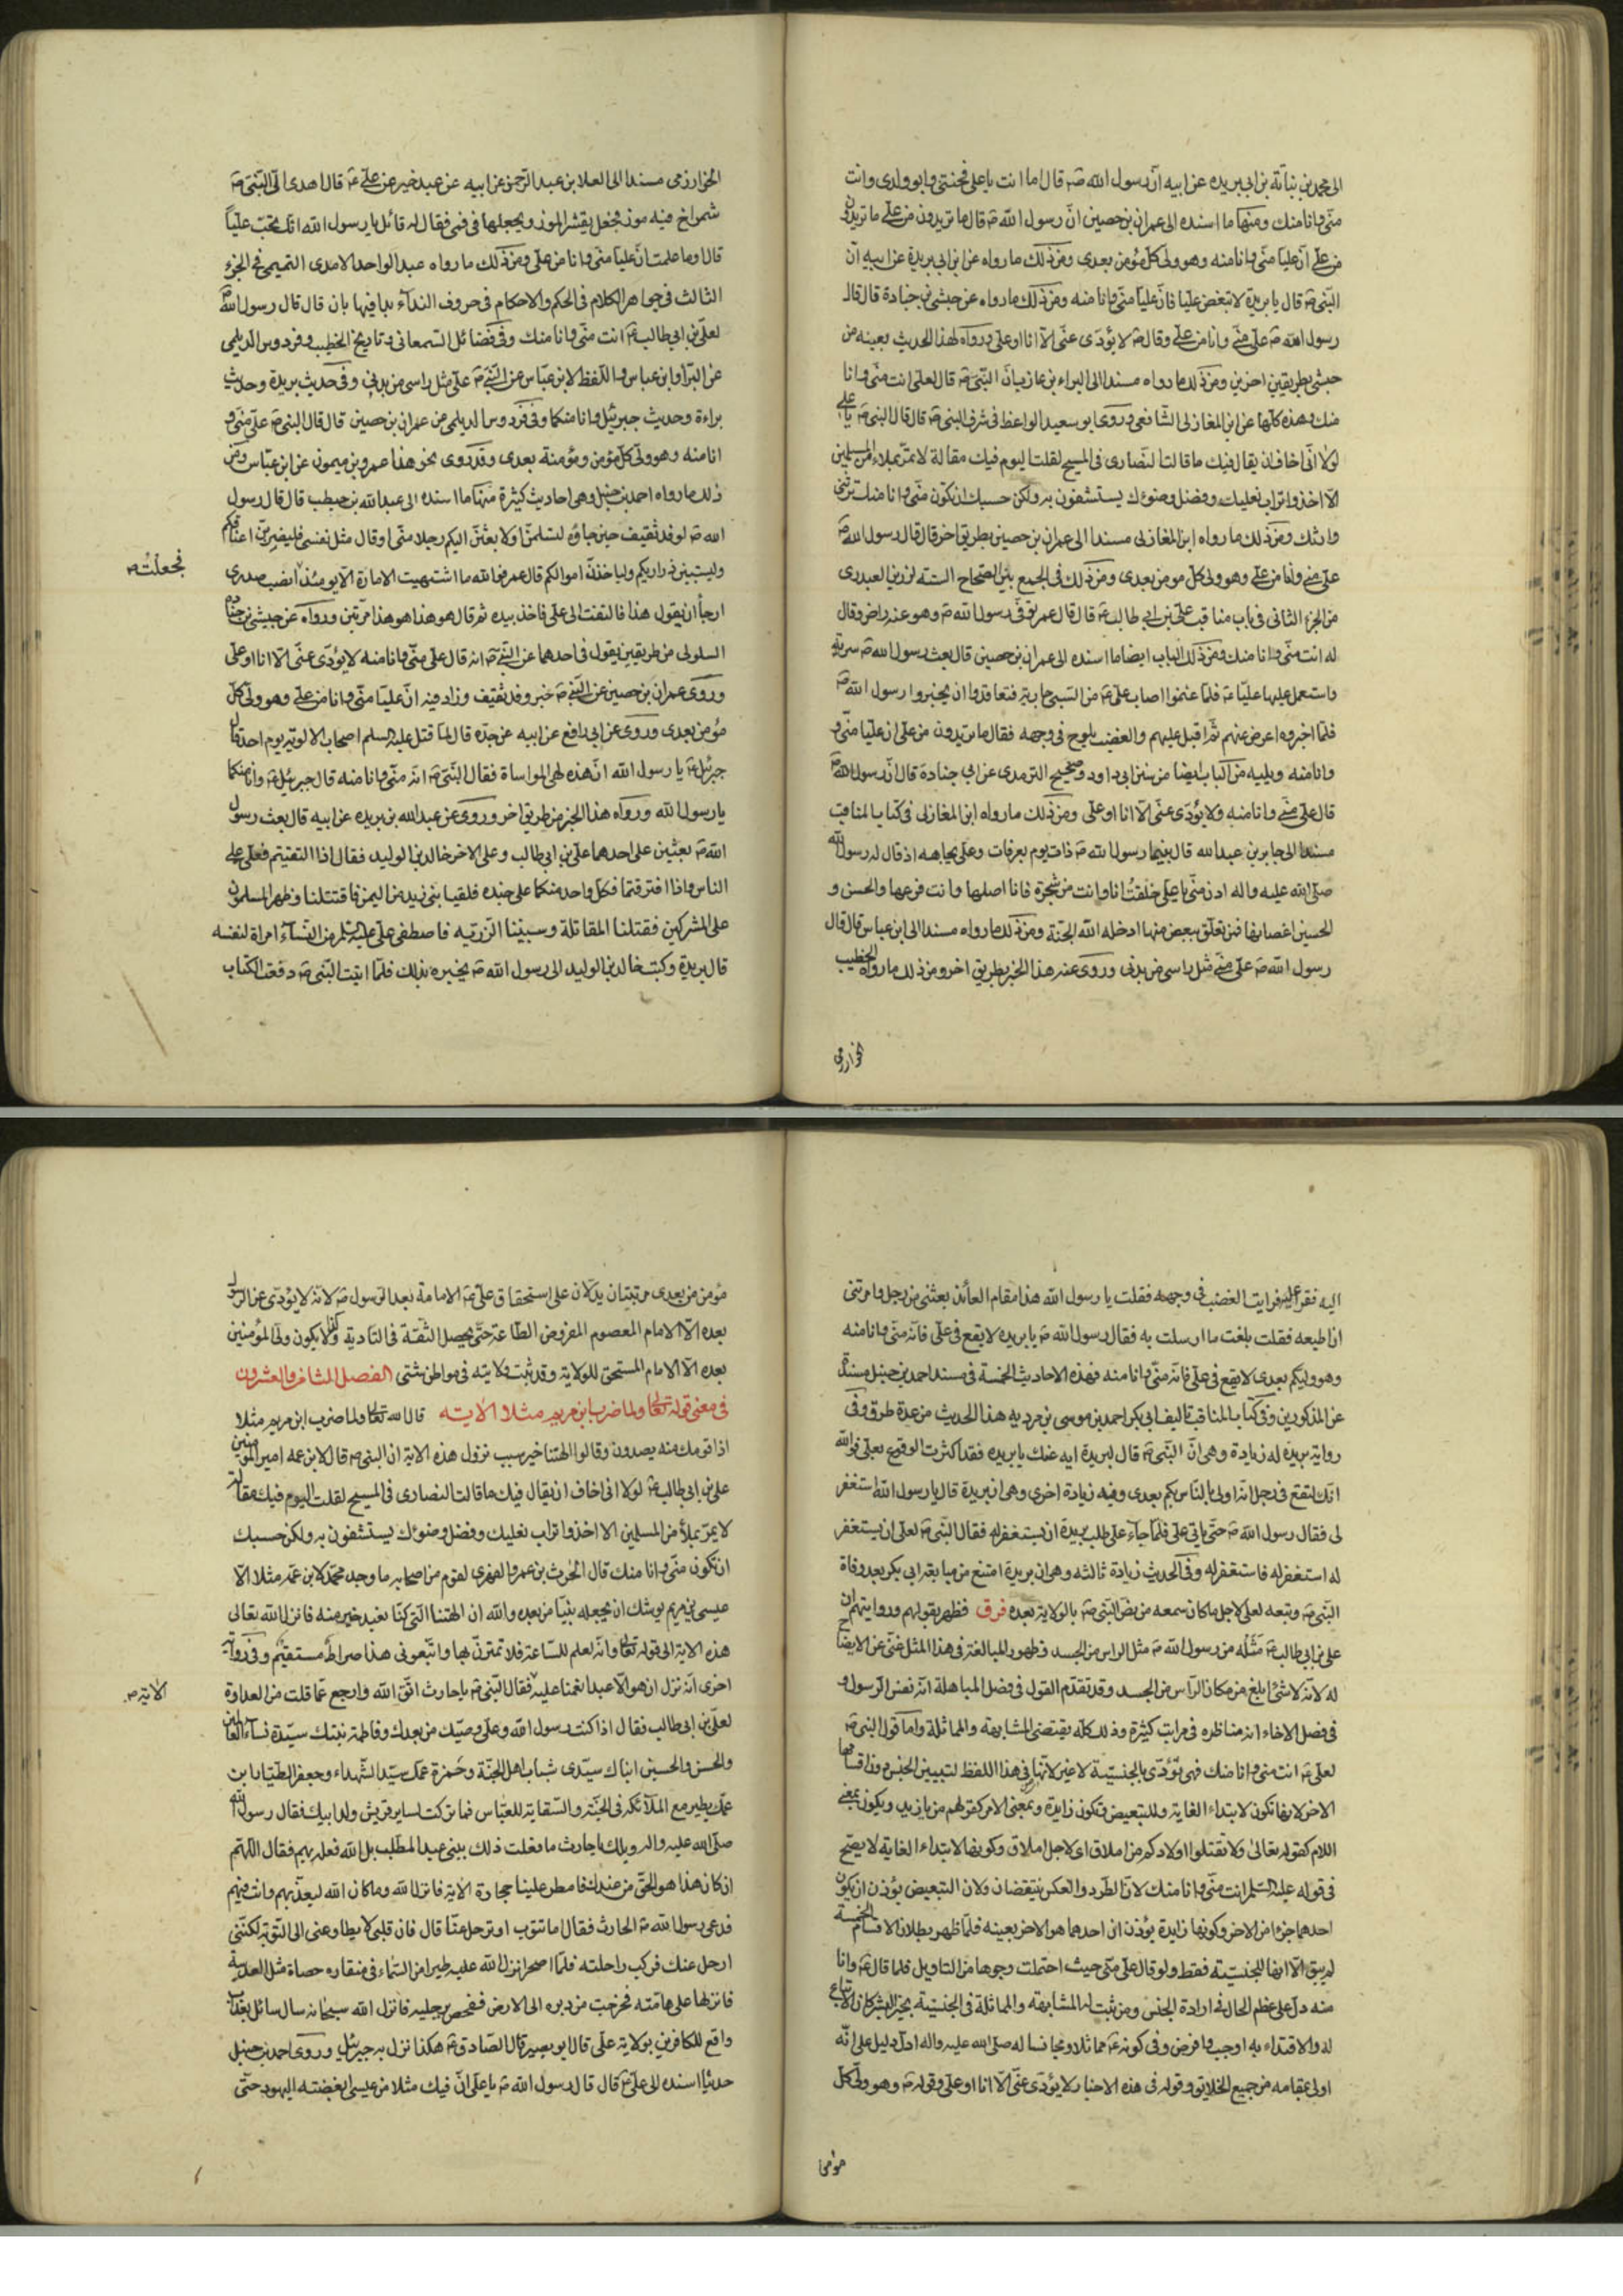 الى محمد بن نباتة بن ابى بريده عن ابيه انّ رسول الله صۤ قال اما انت يا على فختنى وابو ولدى وانت
منّى وانا منك ومنها ما اسنده الى عمران بن حصين انّ رسول الله صۤ قال ما تريدون من على ما تريدون
من على انّ عليا منّى وانا منه وهو ولى كل مؤمن بعدى ومن ذلك ما رواه عن ابن ابى بريدة عن ابيه ان
النّبى صۤ قال يا بريدة لا تبغض عليا فانّ عليا منّى وانا منه ومن ذلك ما رواه عن حبشى بن جنادة قال قال
رسول الله صۤ على منّى وانا من على وقال صۤ لا يؤدّى عنّى الّا انا او على ورواه لهذا الحديث بعينه من
حبشى بطريقين اخرين ومن ذلك ما رواه مسندا الى البراء بن عازب انّ النّبى صۤ قال لعلى انت منّى وانا
منك وهذه كلّها عن ابن المغازلى الشّافعى وروى ابو سعيد الواعظ فى شرف النبى صۤ قال قال النبى صۤ يا على
لولا انّى اخاف ان يقال فيك ما قالت النّصارى فى المسيح لقلت اليوم فيك مقالة لا تمرّ بملاء من المسلمين
الّا اخذوا تراب نعليك وفضل وضوئك يستشفون به ولكن حسبك ان تكون منّى وانا منك ترثنى
وارثك ومن ذلك ما رواه ابن المغازلى مسندا الى عمران بن حصين بطريق اخر قال قال رسول الله صۤ
على منّى وانا من على وهو ولى كل مومن بعدى ومن ذلك فى الجمع بين الصّحاح الستّه لرزين العبدرى
من الجزء الثانى فى باب مناقب علىّ بن ابى طالب عۤ قال قال عمر توفّى رسول الله صۤ وهو عنه راض وقال
له انت منّى وانا منك ومن ذلك الباب ايضا ما اسنده الى عمران بن حصين قال بعث رسول الله صۤ سرية
واستعمل عليها عليّا عۤ فلمّا غنموا اصاب على عۤ من السّبى جارية فتعاقدوا ان يخبروا رسول الله صۤ
فلمّا اخبروه اعرض عنهم ثمّ اقبل عليهم والغضب يلوح فى وجهه فقال ما تريدون من على ان عليا منّى و
وانا منه ويليه من الباب ايضا من سنن ابى داود وصحيح الترمدى عن ابى جنادة قال انّ رسول الله صۤ
قال على منّى وانا منه ولا يؤدّى عنّى الّا انا او على ومن ذلك ما رواه ابن المغازلى فى كتاب المناقب
مسندا الى جابر بن عبد الله قال بينما رسول الله صۤ ذات يوم بعرفات وعلى تجاهه اذ قال له رسول الله
صلى الله عليه واله ادن منّى يا على خلقت انا وانت من شجرة فانا اصلها وانت فرعها والحسن و
الحسين اغصانها فمن تعلّق ببعض منها ادخله الله الجنّة ومن ذلك ما رواه مسندا الى ابن عباس قال قال
رسول الله صۤ على منّى مثل راسى من بدنى وروى عنه هذا الخبر بطريق اخر ومن ذلك ما رواه الخطيب
خوارزمى
الخوارزمى مسندا الى العلا بن عبد الرّحمن عن ابيه عن عبد خير عن على عۤ قال اهدى الى النّبى صۤ
شمراخ فيه موز فجعل يقشر الموز ويجعلها فى فمى فقال له قائل يا رسول الله انّك تحبّ عليّاً
قال او ما علمت انّ عليا منّى وانا من على ومن ذلك ما رواه عبد الواحد الامدى التميمى فى الجزء
الثالث فى جواهر الكلام فى الحكم والاحكام فى حروف النداء بيا فيها بان قال قال رسول الله صۤ
لعلىّ بن ابى طالب عۤ انت منّى وانا منك وفى فضائل السّمعانى وتاريخ الخطيب وفردوس الديلمى
عن البرّا وابن عباس واللّفظ لابن عبّاس عن النّبى صۤ على مثل راسى من بدنى وفى حديث بريدة وحديث
براءة وحديث جبرئيل وانا منكما وفى فردوس الديلمى عن عمران بن حصين قال قال النبى صۤ على منّى و
انا منه وهو ولى كل مؤمن ومؤمنة بعدى وقد روى نحو هذا عمرو بن ميمون عن ابن عبّاس ومن
ذلك ما رواه احمد بن حنبل وهى احاديث كثيرة منها ما اسنده الى عبد الله بن حطب قال قال رسول
الله صۤ لوفد ثقيف حين جاؤه لتسلمنّ او لابعثنّ اليكم رجلا منّى او قال مثل نفسى فليضربنّ اعناقكم
وليسبينّ ذراريكم ولياخذنّ اموالكم قال عمر فوالله ما اشتهيت الامارة الّا يومئذ انصب صدرى
فجعلتُ صۤ
ارجأ ان يقول هذا فالتفت الى على فاخذ بيده ثم قال هو هذا هو هذا مرّتين ورواه عن حبشى بن جنادة
السلولى من طريقين يقول فى احدهما عن النّبى صۤ انه قال على منّى وانا منه لا يؤدّى عنّى الّا انا او على
وروى عمران بن حصين عن النّبى صۤ خبر وفد ثقيف وزاد فيه انّ عليا منّى وانا من على وهو ولى كل
مؤمن بعدى وروى عن ابى رافع عن ابيه عن جدّه قال لمّا قتل على عليه السلم اصحاب الالوية يوم احد قال
جبرئيل عۤ يا رسول الله انّ هذه لهى المواساة فقال النّبى صۤ انّه منّى وانا منه قال جبرئيل عۤ وانا منكما
يا رسول الله ورواه هذا الخبر من طريق اخر وروى عن عبد الله بن بريده عن ابيه قال بعث رسول
الله صۤ بعثين على احدهما على بن ابى طالب وعلى الاخر خالد بن الوليد فقال اذا التقيتم فعلى على
الناس واذا افترقتما فكل واحد منكما على جنده فلقينا بنى زبيد من اليمن فاقتتلنا وظهر المسلمون
على المشركين فقتلنا المقاتلة وسبينا الذّرّيه فاصطفى على عليه السلم من النّسآء امراة لنفسه
قال بريدة وكتب خالد بن الوليد الى رسول الله صۤ يخبره بذلك فلمّا اتيت النّبى صۤ دفعت الكتاب
اليه فقرأ عليه فرايت الغضب فى وجهه فقلت يا رسول الله هذا مقام العائذ بعثنى من رجل وامرتنى
ان اطيعه فقلت بلغت ما ارسلت به فقال رسول الله صۤ يا بريده لا يقع فى على فانّه منّى وانا منه
وهو وليكم بعدى لا يقع فى على فانّه منّى وانا منه فهذه الاحاديث الخمسة فى مسند احمد بن حنبل مسندة
عن المذكورين وفى كتاب المناقب تاليف ابى بكر احمد بن موسى بن مردويه هذا الحديث من عدة طرق وفى
رواية بريده له زيادة وهى انّ النّبى صۤ قال لبريدة ايه عنك يا بريده فقد اكثرت الوقوع بعلى فوالله
انّك لتقع فى رجل انّه اولى بالنّاس بكم بعدى وفيه زيادة اخرى وهى انّ بريدة قال يا رسول الله استغفر
لى فقال رسول الله صۤ حتّى ياتى على فلمّا جآء على طلب بريدة ان يستغفر له فقال النّبى صۤ لعلى ان يستغفر
له استغفر له فاستغفر له وفى الحديث زيادة ثالثه وهى ان بريدة امتنع من مبايعة ابى بكر بعد وفاة
النّبى صۤ وتبعه لعلى لاجل ما كان سمعه من نصّ النّبى صۤ بالولاية بعده فرق فظهر بقولهم وروايتهم ان
على بن ابى طالب عۤ مثله من رسول الله صۤ مثل الراس من الجسد وظهور المبالغة فى هذا المثل غنى عن الايضاح
له لانّه لا شئ ابلغ من مكان الرّاس من الجسد وقد تقدّم القول فى فضل المباهلة انّه نفس الرّسول و
فى فصل الاخاء انه مناظره فى مراتب كثيرة وذلك كلّه يقتضى المشابهه والمماثلة وامّا قول النبى صۤ
لعلى عۤ انت منى وانا منك فهى تؤدّى بالجنسيّة لا غير لانّها فى هذا اللفظ لتبيين الجنس وان اقسامها
الاخر لانها تكون لابتداء الغاية وللتبعيض وتكون زايدة وبمعنى الامر كقولهم من يا زيد ويكون بمعنى
اللام كقوله تعالى ولا تقتلوا اولادكم من املاق اى لاجل املاق وكونها لابتداء الغاية لا يصّح
فى قوله عليه السلم انت منّى وانا منك لانّ الطّرد والعكس ينتقضان ولان التبعيض يؤذن ان يكون
احدهما جزءا من الاخر وكونها زايدة يؤذن ان احدهما هو الاخر بعينه فلمّا ظهر بطلان الاقسام الخمسة
لم يبق الّا انها للجنسيّة فقط ولو قال على منّى حيث احتملت وجوها من التاويل فلما قال عۤ وانا
منه دلّ على عظم الحال فى ارادة الجنس ومن ثبت له المشابهة والمماثلة فى الجنسيّة بخير البشر كان الاتباع
له والاقتداء به اوجب وافرض وفى كونه عۤ مماثلا ومجانسا له صلى الله عليه واله ادلّ دليل على انّه
اولى بمقامه من جميع الخلايق وقوله فى هذه الاخبار لا يؤدّى عنّى الّا انا او على وقوله صۤ وهو ولى كل
مؤمن
مؤمن من بعدى مرتبتان يدلّان على استحقاق على عۤ الامامة بعد الرّسول صۤ لانّه لا يؤدّى عن الرّسول
بعده الّا الامام المعصوم المفروض الطّاعة حتّى يحصل الثّقة فى التادية وكذا لا يكون ولى المؤمنين
بعده الّا الامام المستحق للولاية وقد ثبت ولايته فى مواطن شتى الفصل الثامن والعشرون
فى معنى قوله تعالى ولما ضرب ابن مريم مثلا الاية قال الله تعالى ولما ضرب ابن مريم مثلا
اذا قومك منه يصدون وقالوا الهتنا خير سبب نزول هذه الاية ان النبى صۤ قال لابن عمه امير المؤمنين
على بن ابى طالب عۤ لولا انى اخاف ان يقال فيك ما قالت النصارى فى المسيح لقلت اليوم فيك مقالة
لا يمرّ بملأ من المسلمين الا اخذوا تراب نعليك وفضل وضوئك يستشفون به ولكن حسبك
ان تكون منّى وانا منك قال الحرث بن عمرو الفهرى لقوم من اصحابه ما وجد محمّد لابن عمّه مثلا الّا
عيسى بن مريم يوشك ان يجعله نبيّا من بعده والله ان الهتنا التى كنّا نعبد خير منه فانزل الله تعالى
هذه الاية الى قوله تعالى وانّه لعلم للسّاعة فلا تمترنّ بها واتّبعونى هذا صراط مستقيم وفى رواية
اخرى انّه نزل ان هو الّا عبد انعمنا عليه فقال النّبى صۤ يا حارث اتّق الله وارجع عمّا قلت من العداوة
الاية صۤ
لعلى بن ابى طالب فقال اذا كنت رسول الله وعلى وصيّك من بعدك وفاطمة بنتك سيّدة نساء العالمين
والحسن والحسين ابناك سيّدى شباب اهل الجنّة وحمزة عمّك سيّد الشّهداء وجعفر الطيّار ابن
عمّك يطير مع الملآئكة فى الجنّة والسّقاية للعبّاس فما تركت لساير قريش ولد ابيك فقال رسول الله
صلى الله عليه واله ويلك يا حارث ما فعلت ذلك ببنى عبد المطّلب بل الله فعله بهم فقال اللّهم
ان كان هذا هو الحقّ من عندك فامطر علينا حجارة الاية فانزل الله وما كان الله ليعذّبهم وانت فيهم
فدعى رسول الله صۤ الحارث فقال اما تتوب او ترحل عنّا قال فان قلبى لا يطاوعنى الى التّوبة لكنّنى
ارحل عنك فركب راحلته فلمّا اصحر انزل الله عليه طيرا من السّماء فى منقاره حصاة مثل العدسة
فانزلها على هامته فخرجت من دبره الى الارض ففحص برجليه فانزل الله سبحانه سال سائل بعذاب
واقع للكافرين بولاية على قال ابو بصير قال الصّادق عۤ هكذا نزل به جبرئيل وروى احمد بن حنبل
حديثا اسنده الى على عۤ قال قال رسول الله صۤ يا على انّ فيك مثلا من عيسى ابغضته اليهود حتّى